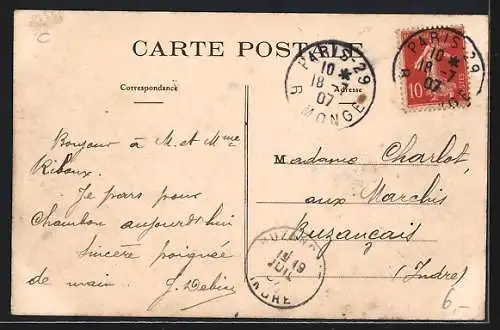 C
CARTE POSTALE
PARIS-29
10 *
18 -7
07
R. MONGE
PARIS-29
10 *
18 -7
07
R MONGE
10
Correspondance
Adresse
Bonjour à M. et Mme
Riboux.
Je pars pour
Chambon aujourd'hui
Sincère poignée
de main.
Madame Charlot,
aux Marchis
Buzançais
(Indre)
BUZANÇAIS
19
JUIL
INDRE
6,-